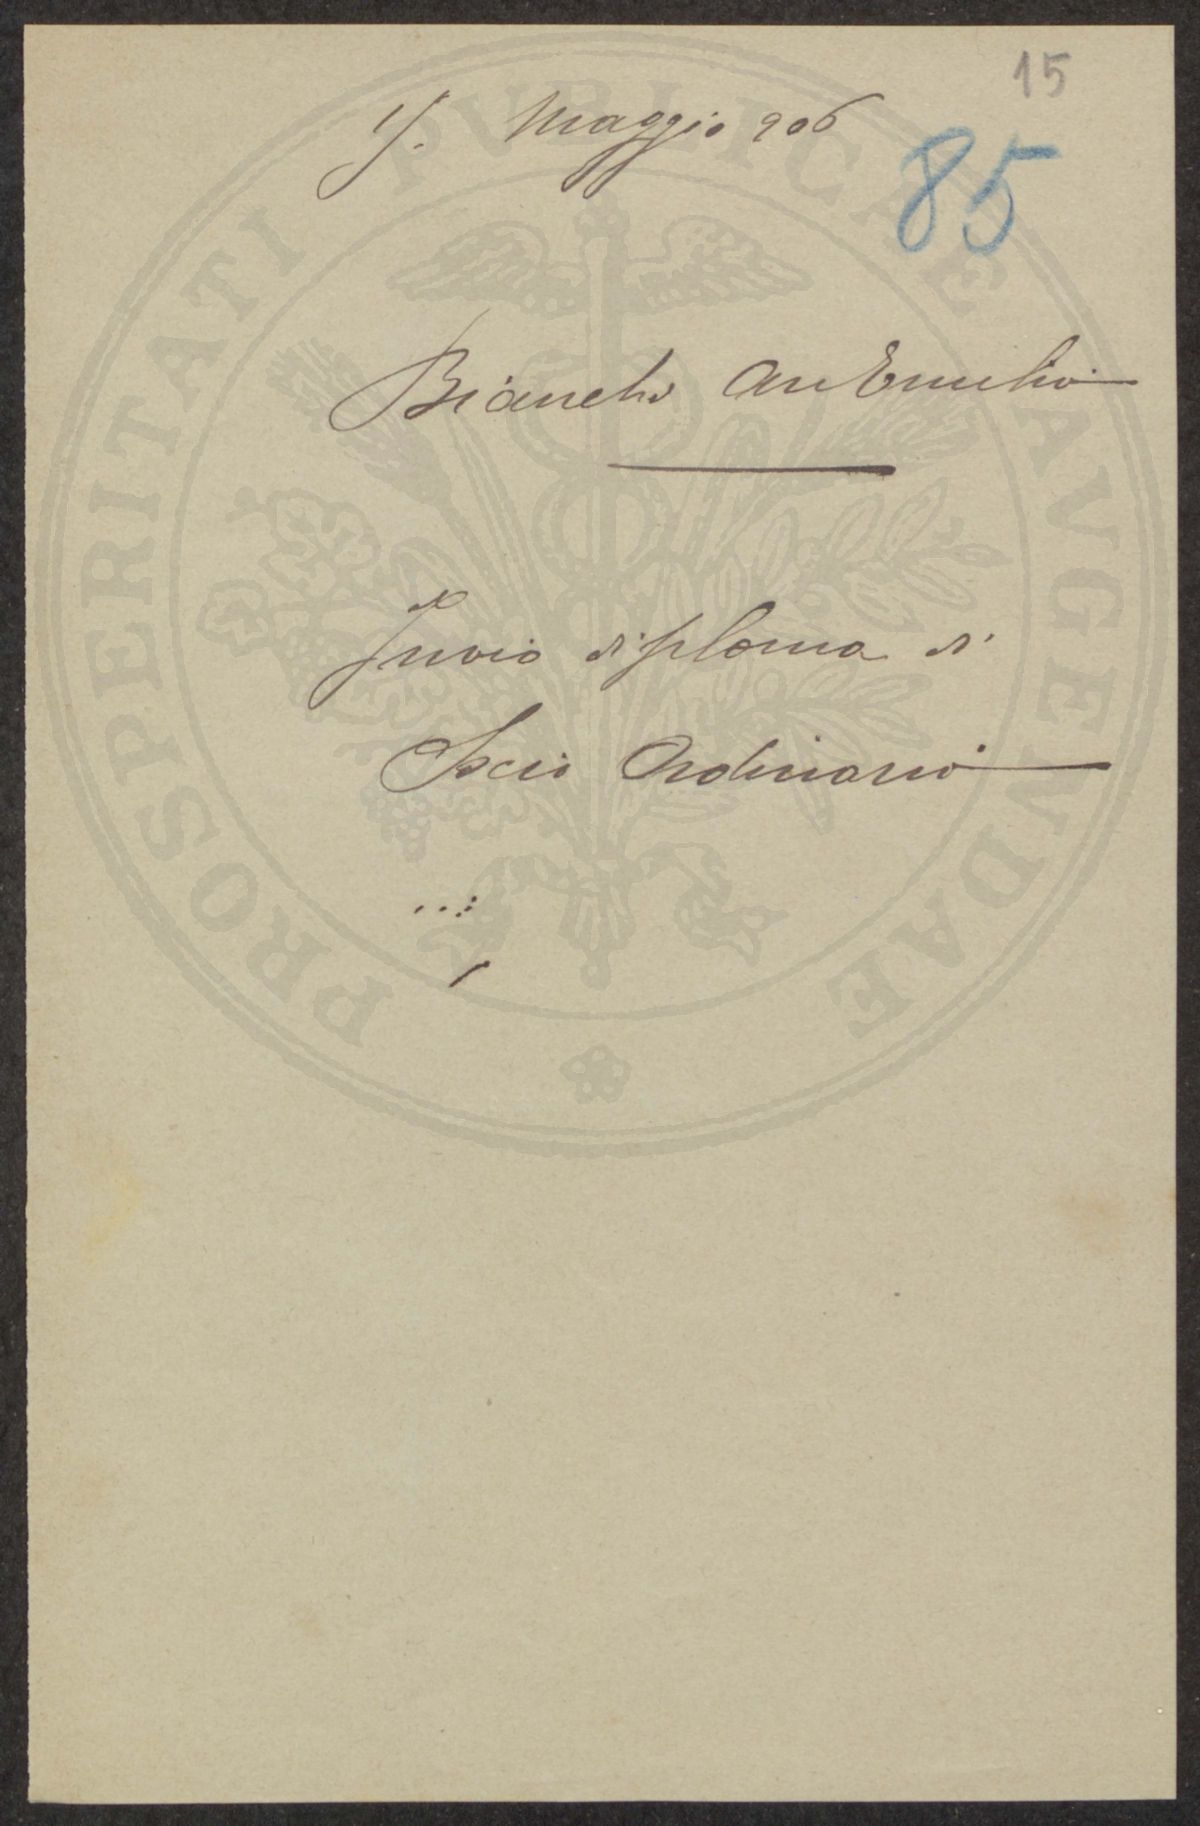 15
Maggio 906
85
Bianchi Emilio
Invio diploma di
Socio Ordinario
PROSPERITATI PVBLICAE AVGENDAE